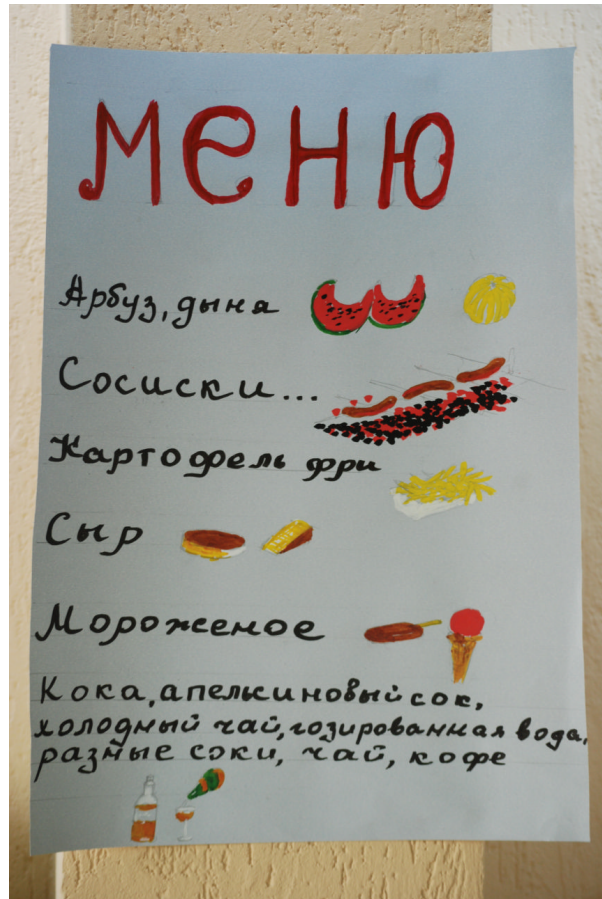 меню
Арбуз, дыня
Сосиски...
Картофель фри
Сыр
Мороженое
Кока, апельсиновый сок,
холодный чай, гозированная вода,
разные соки, чай, кофе